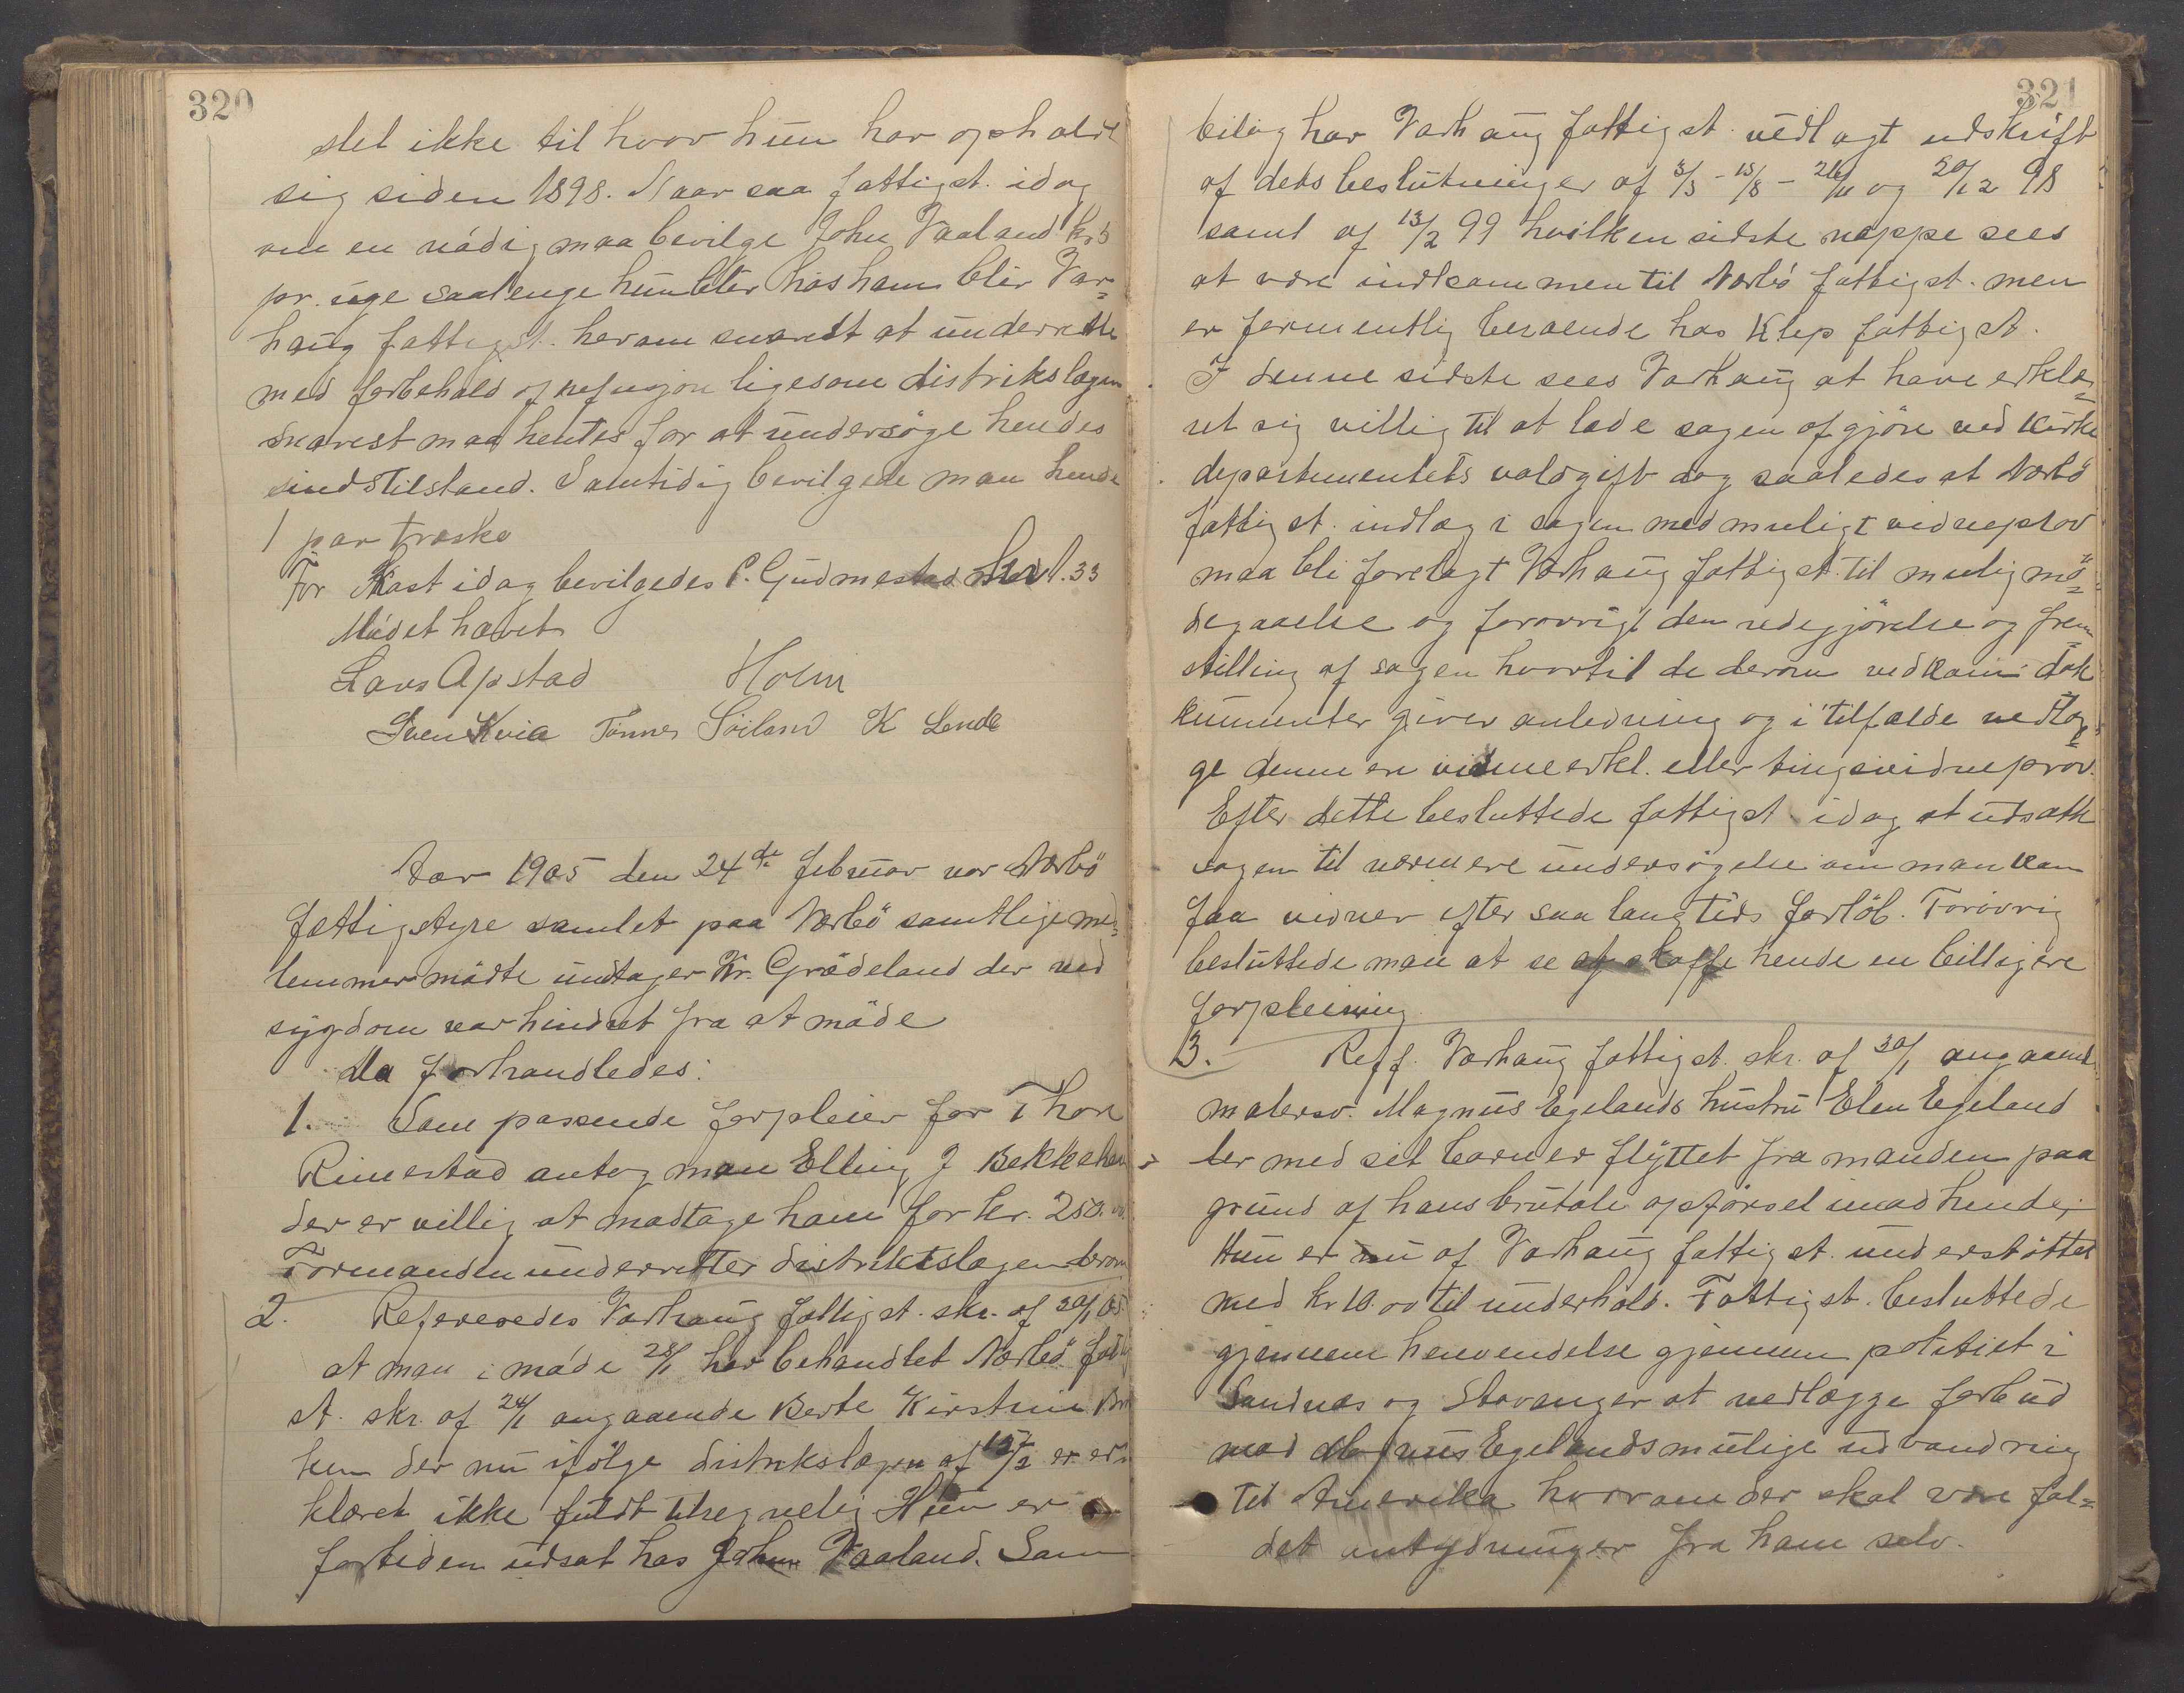 320
slet ikke til hvor hun har opholdt
sig siden 1898. Naar saa fattigst. idag
om en nådig maa bevilge John Vaaland kr 5
pr. uge saalenge hun blir hos ham blir Var=
haug fattigst. herom snarest at underrette
med forbehold af refusjon ligesom distrikslægen
snarest maa hentes for at undersøge hendes
sindstilstand. Samtidig bevilgede man hende
1 par træsko
For Kost idag bevilgedes P. Gudmestad kr 1.33
Mødet hævet
Lars Apstad Holm
Sven Kvia Tønnes Söiland K Lende
Aar 1905 den 24de februar var Nærbö
fattigstyre samlet paa Nærbö samtlige med=
lemmer mödte undtager Kr. Grödeland der ved
sygdom var hindret fra at möde
Da forhandledes:
1. Som passende forpleier for Thore
Rimestad antog man Elling J Bekkeheien
der er villig at modtage ham for kr. 250.00
Formanden underretter distriktslægen derom
2. Refereredes Varhaug fattigst. skr. af 30/1 05
at man i møde 28/1 har behandlet Nærbö fattig
st. skr. af 24/1 angaaende Berte Kirstine
ken der nu ifölge distrikslægen af 15/2 er er=
klæret ikke fuldt tilregnelig Hun er
fortiden udsat hos John Vaaland. Som
321
bilag har Varhaug fattigst. vedlagt udskrift
af dets beslutninger af 3/3 - 15/8 - 26/11 og 20/12 98
samt af 13/2 99 hvilken sidste neppe sees
at være indkommen til Nærbö fattigst. men
er formentlig beroende hos Klep fattigst.
I denne sidste sees Varhaug at have erklæ=
ret sig villig til at lade sagen afgjöre ved Kirke
departementets voldgift dog saaledes at Nærbö
fattigst. indlæg i sagen med muligt vidneprov
maa bli forelagt Varhaug fattigst. til mulig imö=
degaaelse og forøvrigt den redegjörelse og frem
stilling af sagen hvortil de derom vedkom. dok
kummenter giver anledning og i tilfælde vedlæg=
ge denne en vidneerkl. eller tingsvidneprov.
Efter dette besluttede fattigst idag at udsætte
sagen til nærmere undersögelse om man kan
faa vidner efter saa lang tids forlöb. Forövrig
besluttede man at se at skaffe hende en billigere
forpleining
3. Reff. Varhaug fattigst. skr. af 30/1 angaaende
malersv. Magnus Egelands hustru Elen Egeland
der med sit barn er flyttet fra manden paa
grund af hans brutale opförsel imod hende.
Hun er nu af Varhaug fattigst. understöttet
med kr 10.00 til underhold. Fattigst. besluttede
gjennem henvendelse gjennem politiet i
Sandnæs og Stavanger at nedlægge forbud
mod Magnus Egelands mulige udvandring
til Amerika hvorom der skal være fal=
det antydninger fra ham selv.